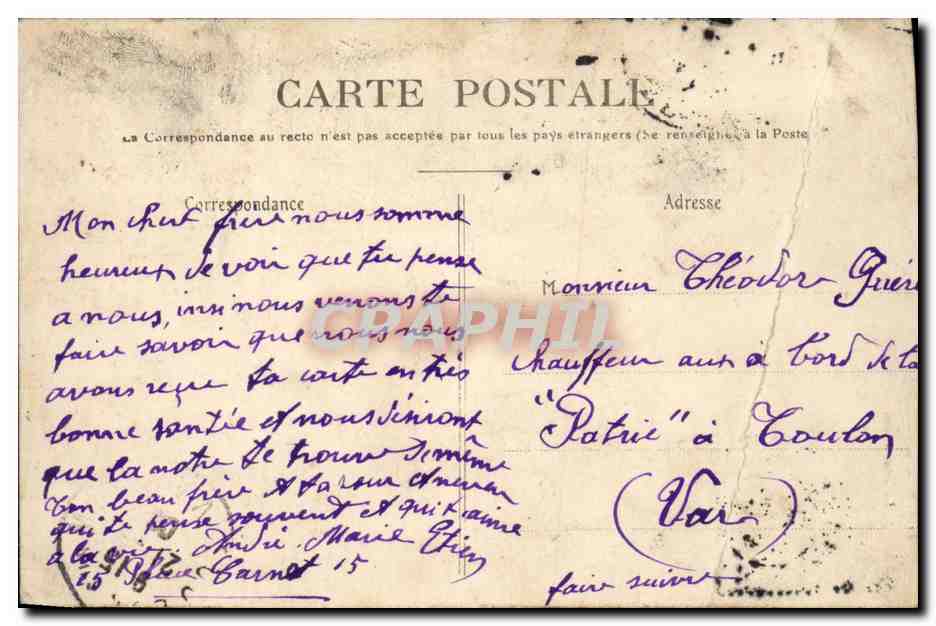 CARTE POSTALE
La Correspondance au recto n'est pas acceptée par tous les pays étrangers (Se renseigner à la Poste
Correspondance
Mon chert frère nous somme
heureux de voir que tu pense
a nous, insi nous venons te
faire savoir que nous nous
avons reçu ta carte en très
bonne santée et nous désiront
que la notre te trouve de même
Ton beau frère et ta sœur et neveu
qui te pense souvent et qui t'aime
a la vie André Marie Etien
15 Place Carnot 15
Adresse
Monsieur Théodore Guéri
chauffeur aux a bord de la
"Patrie" à Toulon
(Var)
faire suivre
CPAPHIL